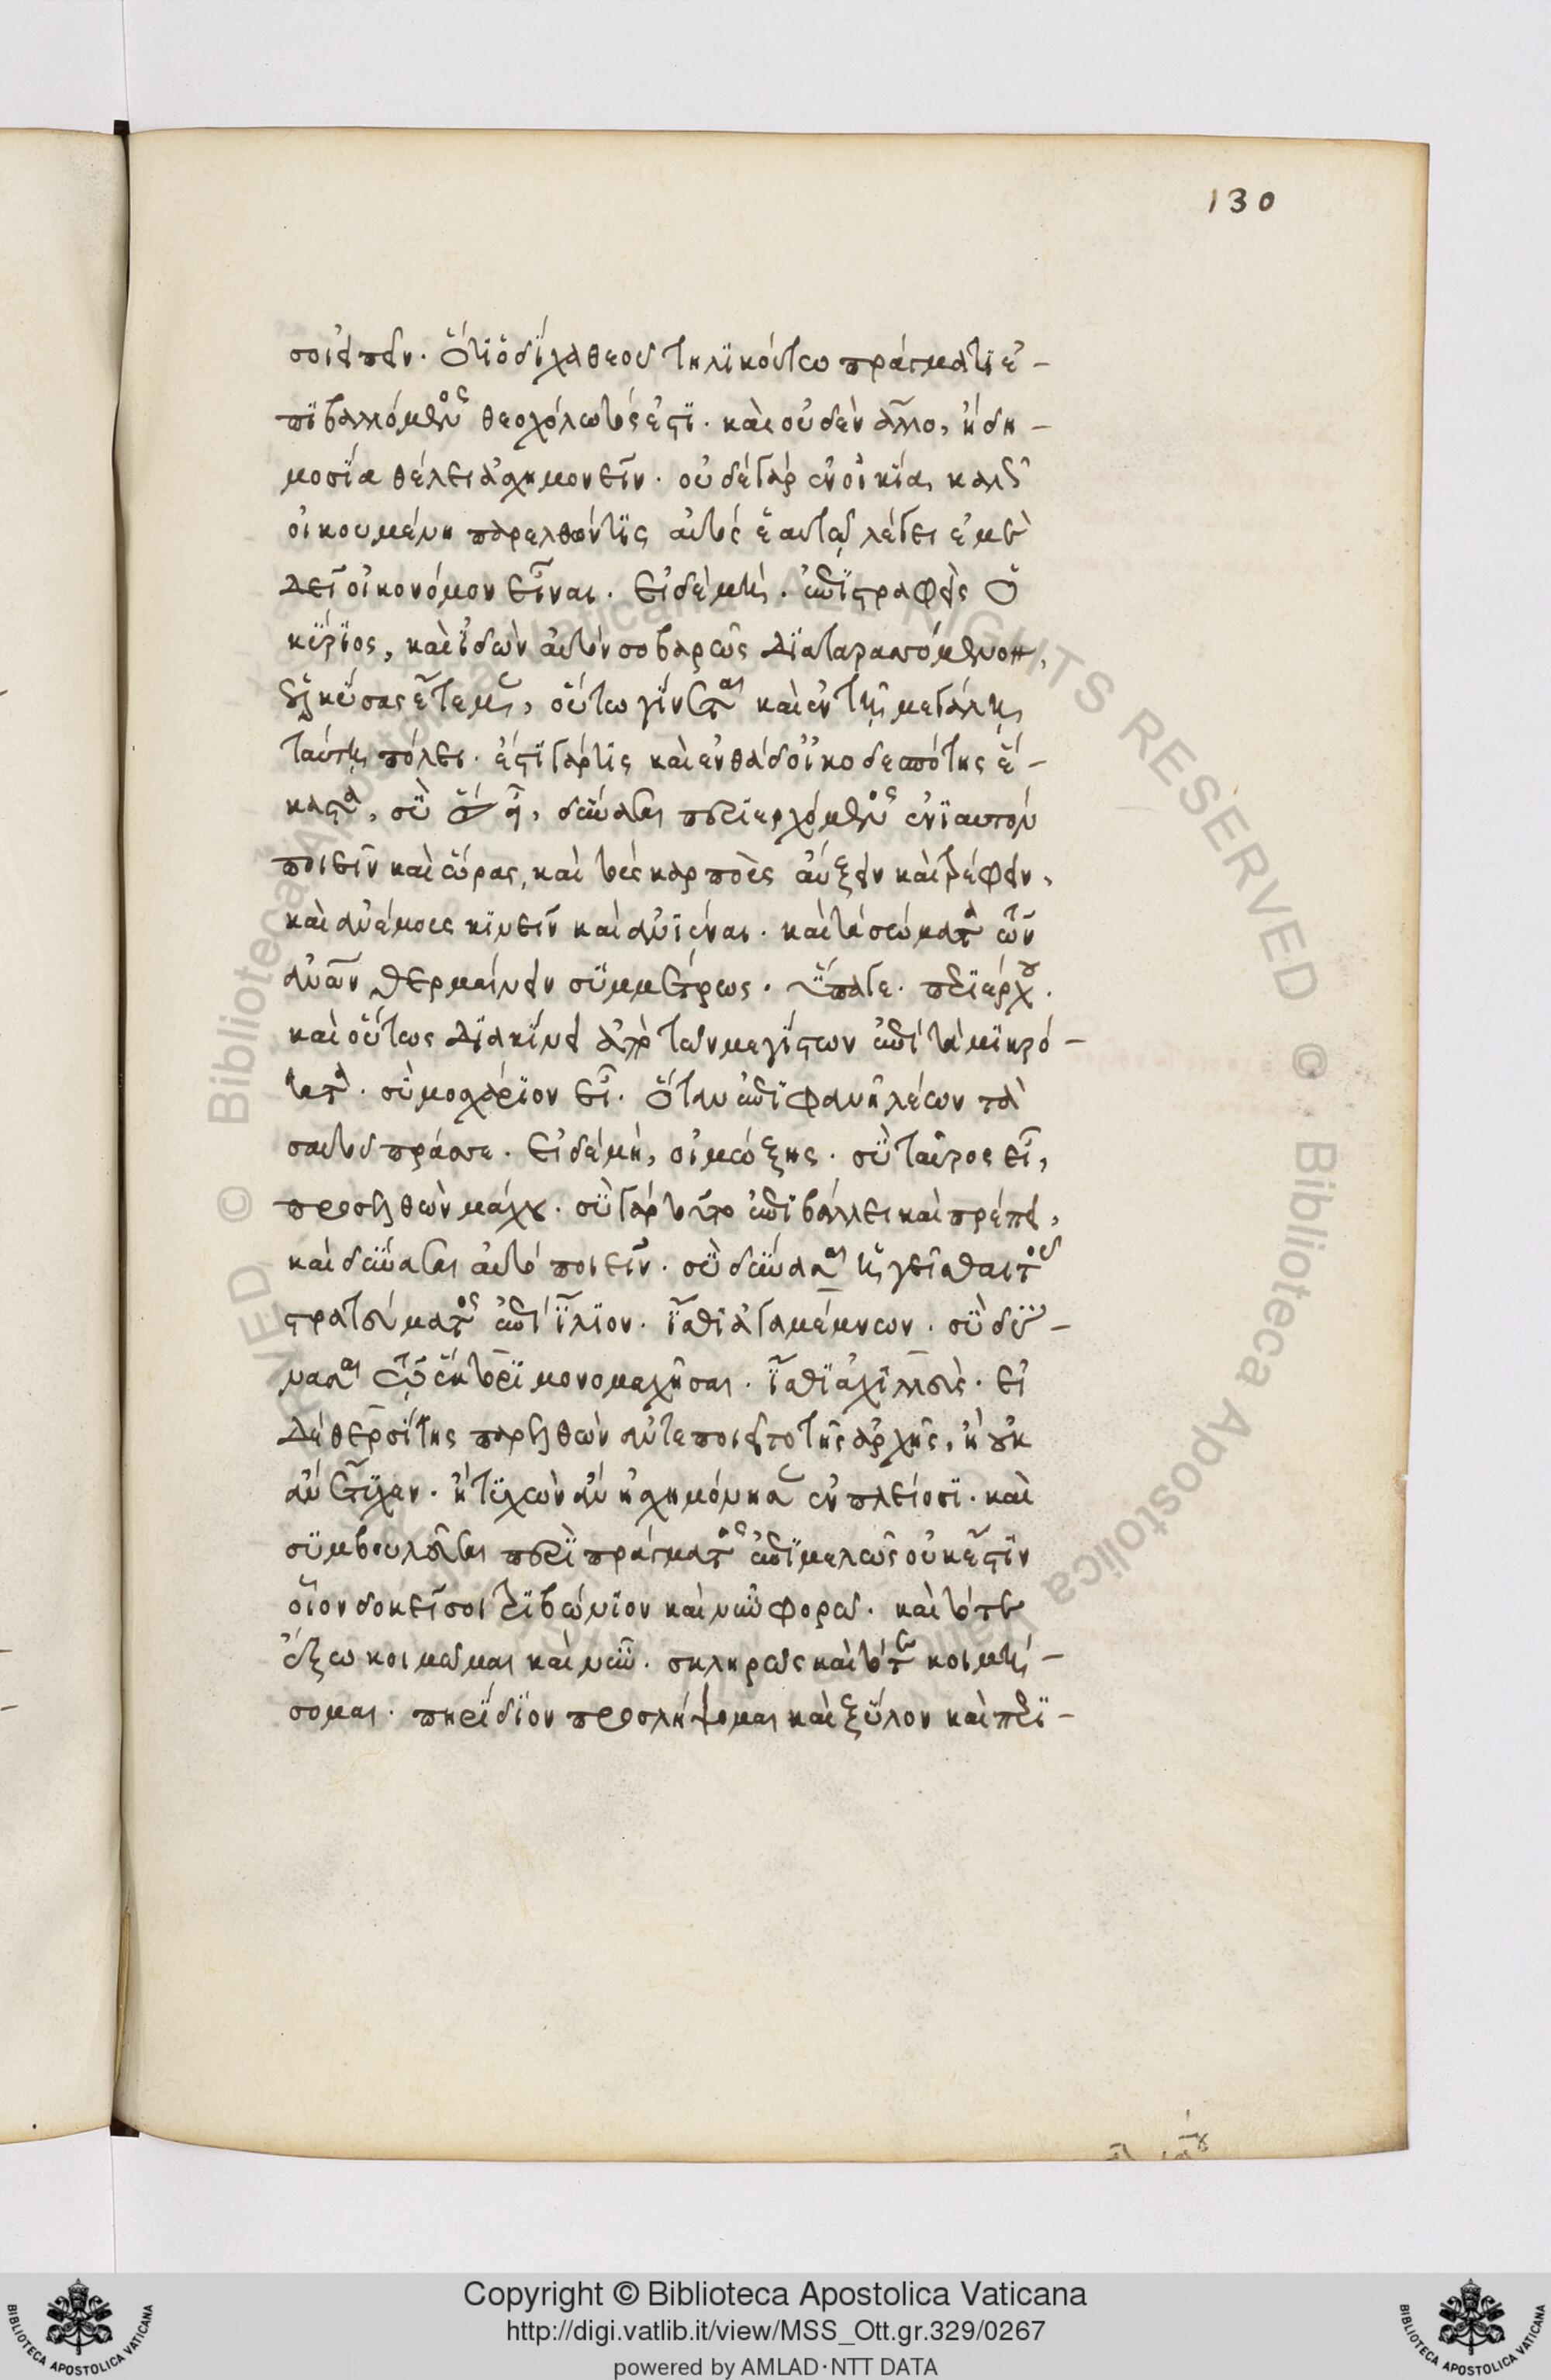 130
σοι εἰπεῖν. ὅτι ὁ δίχα θεοῦ τηλικούτω πράγματι ἐ-
πιβαλλόμενος θεοχόλωτός ἐστι. καὶ οὐδὲν ἄλλο, ἢ δη-
μοσία θέλει ἀσχημονεῖν. οὐδὲ γὰρ ἐν οἰκία καλῶς
οἰκουμένη παρελθών τις αὐτὸς ἑαυτῶ λέγει ἐμὲ
δεῖ οἰκονόμον εἶναι. εἰ δὲ μή. ἐπιστραφεὶς ὁ
κύριος, καὶ ἰδὼν αὐτὸν σοβαρῶς διαταττόμενον,
ἑλκύσας ἔτεμεν, οὕτω γίνεται καὶ ἐν τῆ μεγάλη
ταύτη πόλει. ἔστι γάρ τις καὶ ἐνθάδ οἰκοδεσπότης ἕ-
καστα, σὺ ἥλιος εἶ, δύνασαι περιερχόμενος ἐνιαυτὸν
ποιεῖν καὶ ὥρας, καὶ τοὺς καρποὺς αὔξειν καὶ τρέφειν,
καὶ ἀνέμους κινεῖν καὶ ἀνιέναι. καὶ τὰ σώματα τῶν
ἀνῶν θερμαίνειν συμμέτρως. ὕπαγε. περιέρχου.
καὶ οὕτως διακίνει ἀπὸ τῶν μεγίστων ἐπὶ τὰ μικρό-
τατα. σὺ μοσχάριον εἶ. ὅταν ἐπιφανῆ λέων τὰ
σαυτοῦ πράσσε. εἰ δὲ μή, οἰμώξης. σὺ ταῦρος εἶ,
προσελθὼν μάχου. σοὶ γὰρ τοῦτο ἐπιβάλλει καὶ πρέπει,
καὶ δύνασαι αὐτὸ ποιεῖν. σὺ δύνασαι ἡγεῖσθαι τοῦ
στρατεύματος ἐπὶ ἴλιον. ἴσθι ἀγαμέμνων. σὺ δύ-
νασαι τῶ ἕκτορι μονομαχῆσαι. ἴσθι ἀχιλλεύς. εἰ
δὲ θερσίτης παρελθὼν ἀντεποιεῖτο τῆς ἀρχῆς, ἢ οὐκ
ἂν ἔτυχεν. ἢ τυχὼν ἂν ἠσχημόνησεν ἐν πλείοσι. καὶ
σὺ μβουλεῦσαι περὶ πράγματος ἐπιμελῶς οὐκ ἔστιν
οἷον δοκεῖ σοι τριβώνιον καὶ νῦν φορῶ. καὶ τότε
ἕξω κοιμῶμαι καὶ νῦν. σκληρῶς καὶ τότε κοιμή-
σομαι. πηρίδιον προσλήψομαι καὶ ξύλον καὶ περι-
Copyright © Biblioteca Apostolica Vaticana
http://digi.vatlib.it/view/MSS_Ott.gr.329/0267
powered by AMLAD·NTT DATA